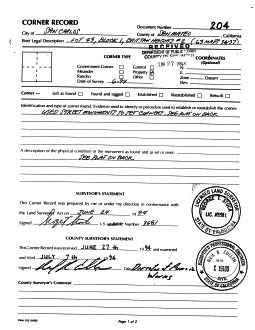 CORNER RECORD
Document Number 204
City of SAN CARLOS County of SAN MATEO, California
Brief Legal Description LOT 23, BLOCK 1,
RECEIVED
DEPARTMENT OF PUBLIC
CORNER TYPE
COORDINATES
(Optional)
Government Corner Control
JUN 27 1994
Meander Property N.
Rancho Other E.
Date of Survey 6-94 Zone Datum
Elev.
Corner — Left as found Found and tagged Established Reestablished Rebuilt
Identification and type of corner found: Evidence used to identify or procedure used to establish or reestablish the corner:
USED STREET MONUMENTS TO SET CORNER. SEE PLAT ON BACK.
A description of the physical condition of the monument as found and as set or reset:
SEE PLAT ON BACK
SURVEYOR'S STATEMENT
This Corner Record was prepared by me or under my direction in conformity with
the Land Surveyors Act on JUNE 24, 1994
Signed L.S. 3681
COUNTY SURVEYOR'S STATEMENT
This Corner Record was received JUNE 27th 1994 and examined
and filed JULY 7th 1994
Signed Title
Works
County Surveyor's Comment
LICENSED LAND SURVEYOR
STATE OF CALIFORNIA
Page 1 of 2